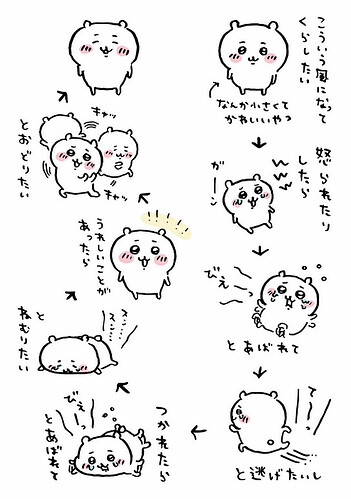 こういう風になって
くらしたい
なんか小さくて
かわいいやつ
怒られたり
したら
ガーン
びえーっ
とあばれて
て〜っ
と逃げたいし
つかれたら
びえー
とあばれて
スン…
スン…
と
ねむりたい
うれしいことが
あったら
キャッ
キャッ
とおどりたい